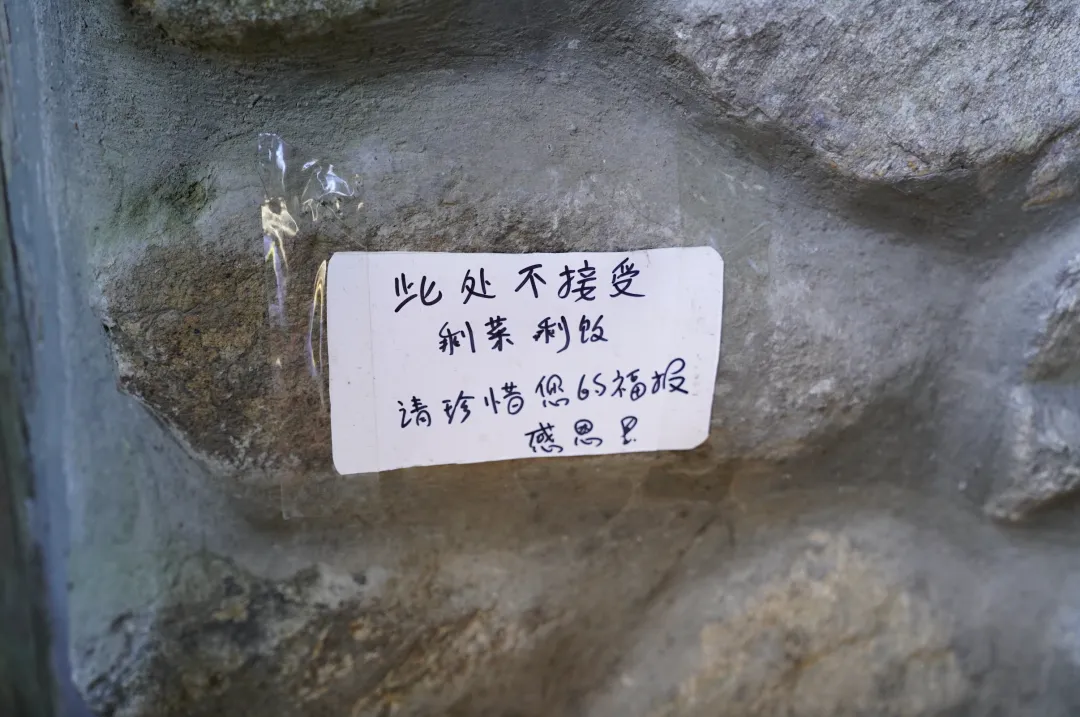 此处不接受
剩菜剩饭
请珍惜您的福报
感恩